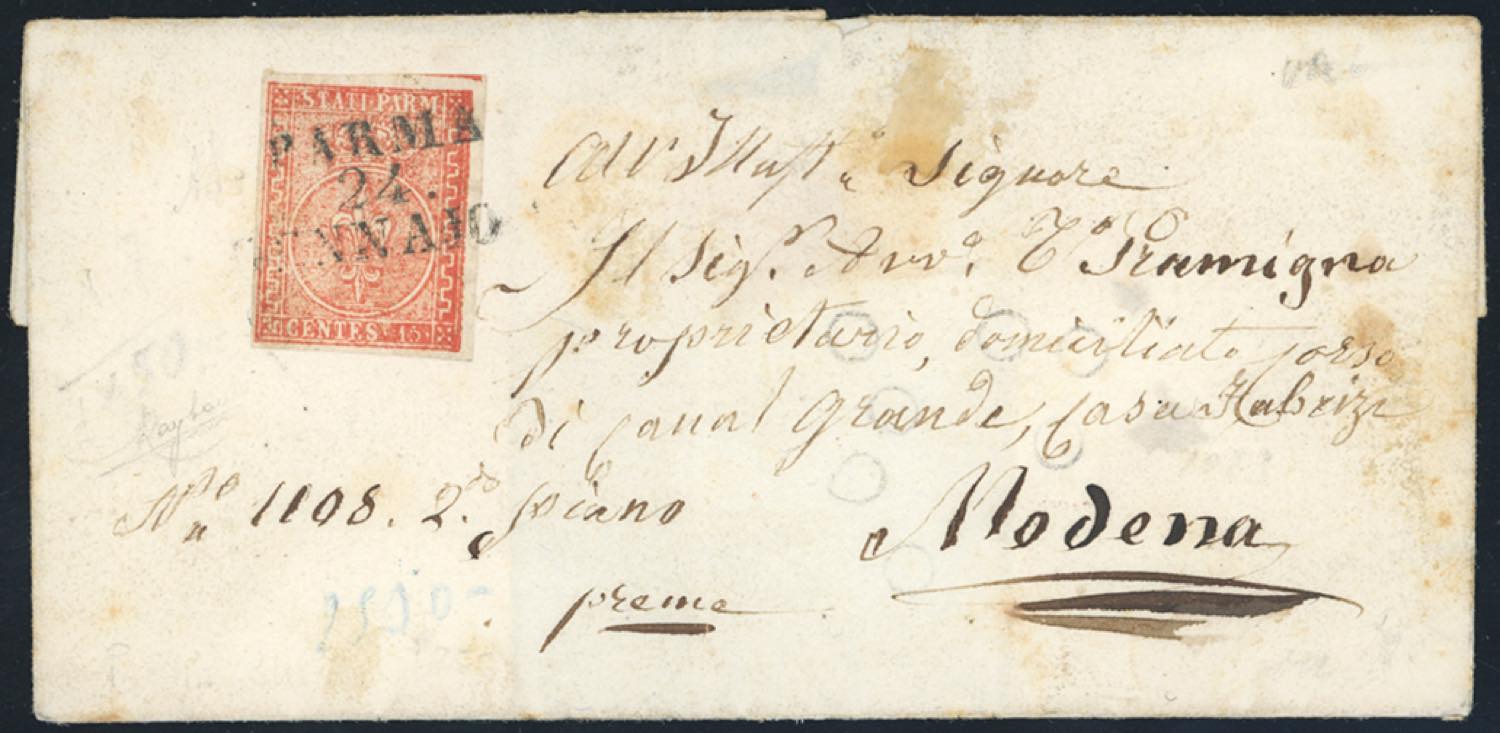 STATI PARM
PARMA
24.
GENNAJO
CENTES. 15
All' Illust.e Signore
Il Sig.r Avv.o T.o Gramigna
proprietario, domiciliato corso
di Canal Grande, Casa Fabrizi
N.o 1108. 2.do piano
Modena
preme